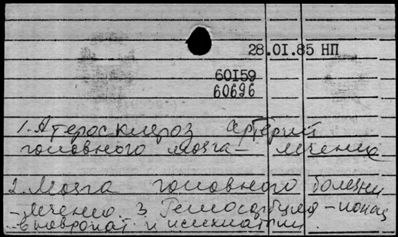 28.01.85 НП
60159
60696
1. Атеросклероз артерий
головного мозга - лечение
2. Мозга головного болезни
- лечение 3. Гемосорбция - показ
в невропат. и психиатрии